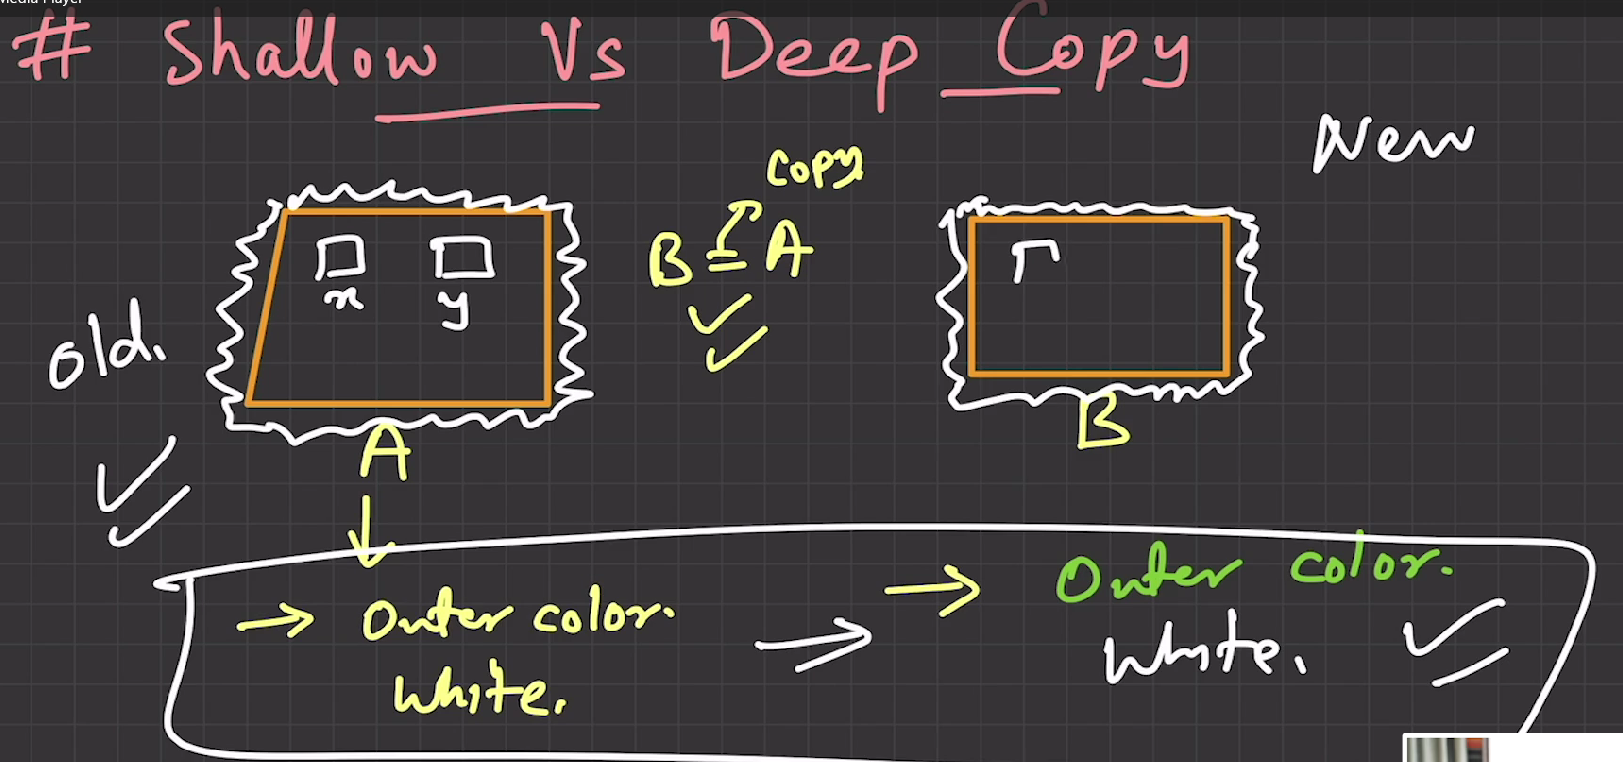 Media Player
# Shallow Vs Deep Copy
New
Copy
B = A
x y
old.
A
B
→ Outer color.
White.
→ Outer color.
White.